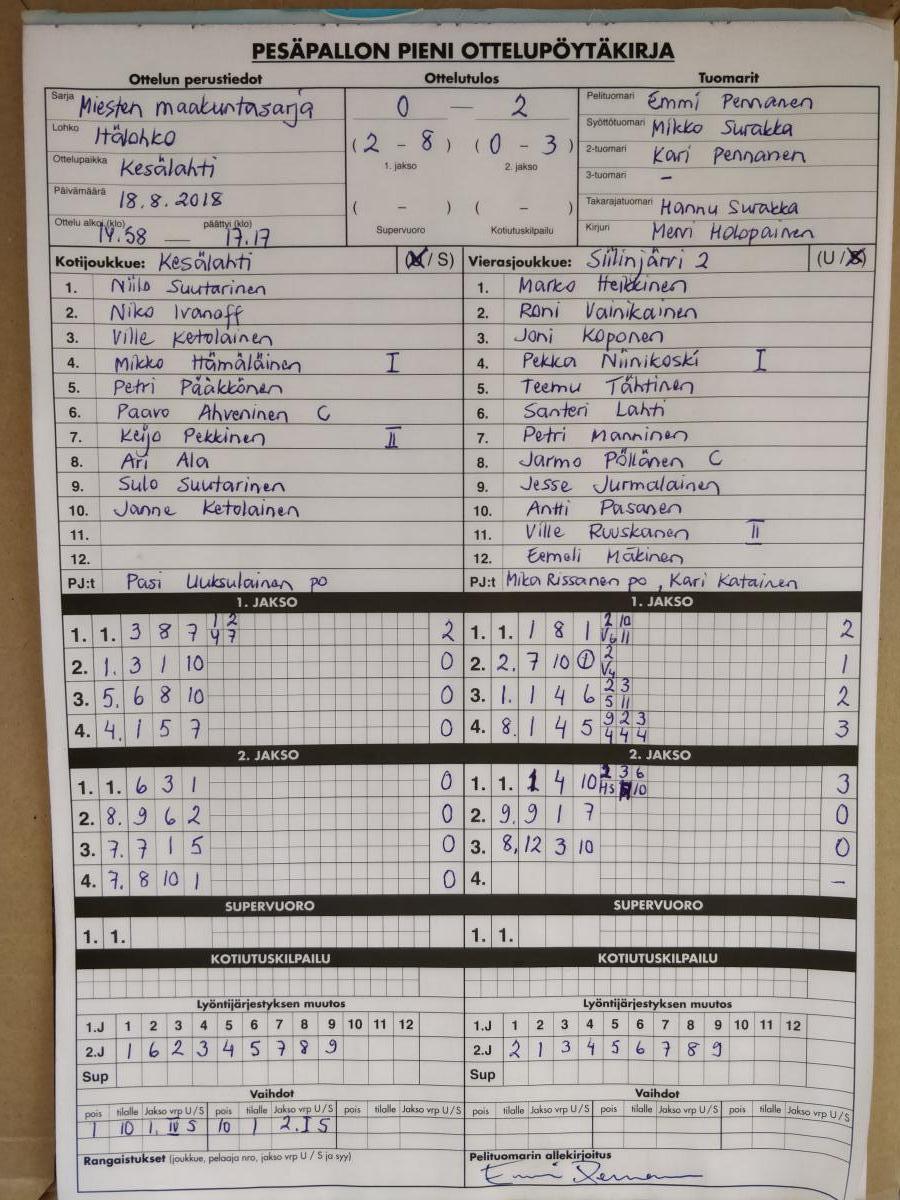 PESÄPALLON PIENI OTTELUPÖYTÄKIRJA
Ottelun perustiedot Ottelutulos Tuomarit
Sarja Miesten maakuntasarja
Lohko Itälohko
Ottelupaikka Kesälahti
Päivämäärä 18.8.2018
Ottelu alkoi (klo) päättyi (klo)
14.58 — 17.17
0 — 2
( 2 - 8 ) ( 0 - 3 )
1. jakso 2. jakso
( - ) ( - )
Supervuoro Kotiutuskilpailu
Pelituomari Emmi Pennanen
Syöttötuomari Mikko Surakka
2-tuomari Kari Pennanen
3-tuomari -
Takarajatuomari Hannu Surakka
Kirjuri Mervi Holopainen
Kotijoukkue: Kesälahti (U / S)
1. Niilo Suutarinen
2. Niko Ivanoff
3. Ville Ketolainen
4. Mikko Hämäläinen I
5. Petri Pääkkönen
6. Paavo Ahveninen C
7. Keijo Pekkinen II
8. Ari Ala
9. Sulo Suutarinen
10. Janne Ketolainen
11.
12.
PJ:t Pasi Uuksulainen po
Vierasjoukkue: Siilinjärvi 2 (U / S)
1. Marko Heikkinen
2. Roni Vainikainen
3. Joni Koponen
4. Pekka Niinikoski I
5. Teemu Tähtinen
6. Santeri Lahti
7. Petri Manninen
8. Jarmo Pöllänen C
9. Jesse Jurmalainen
10. Antti Pasanen
11. Ville Ruuskanen II
12. Eemeli Mäkinen
PJ:t Mika Rissanen po , Kari Katainen
1. JAKSO
1. 1. 3 8 7 1 2 2
4 7
2. 1. 3 1 10 0
3. 5. 6 8 10 0
4. 4. 1 5 7 0
1. JAKSO
1. 1. 1 8 1 2 10 2
V6 11
2. 2. 7 10 1 2 1
V4
3. 1. 1 4 6 2 3 2
5 11
4. 8. 1 4 5 9 2 3 3
4 4 4
2. JAKSO
1. 1. 6 3 1 0
2. 8. 9 6 2 0
3. 7. 7 1 5 0
4. 7. 8 10 1 0
2. JAKSO
1. 1. 1 4 10 2 3 6 3
H5 10
2. 9. 9 1 7 0
3. 8, 12 3 10 0
4. -
SUPERVUORO SUPERVUORO
1. 1. 1. 1.
KOTIUTUSKILPAILU KOTIUTUSKILPAILU
Lyöntijärjestyksen muutos
1.J 1 2 3 4 5 6 7 8 9 10 11 12
2.J 1 6 2 3 4 5 7 8 9
Sup
Lyöntijärjestyksen muutos
1.J 1 2 3 4 5 6 7 8 9 10 11 12
2.J 2 1 3 4 5 6 7 8 9
Sup
Vaihdot
pois tilalle Jakso vrp U / S pois tilalle Jakso vrp U / S pois tilalle Jakso vrp U / S
1 10 1. IV S 10 1 2. I S
Vaihdot
pois tilalle Jakso vrp U / S pois tilalle Jakso vrp U / S pois tilalle Jakso vrp U / S
Rangaistukset (joukkue, pelaaja nro, jakso vrp U / S ja syy)
Pelituomarin allekirjoitus